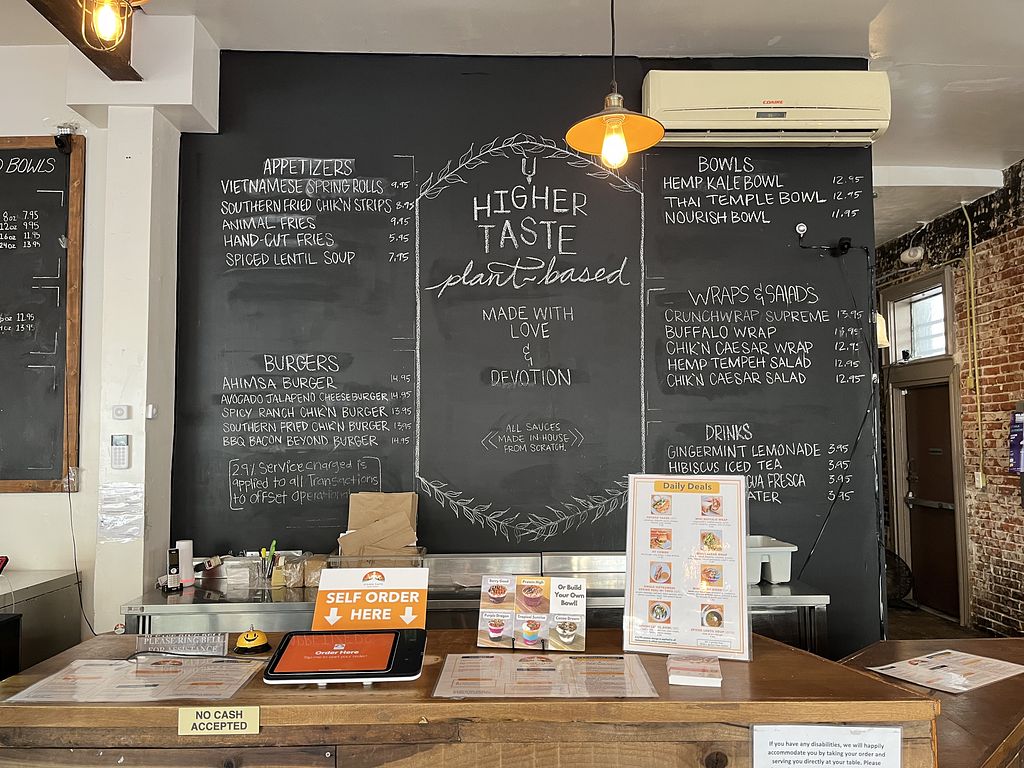 BOWLS
8oz 7.95
12oz 9.95
16oz 11.95
24oz 13.95
APPETIZERS
VIETNAMESE SPRING ROLLS 9.95
SOUTHERN FRIED CHIK'N STRIPS 8.95
ANIMAL FRIES 9.95
HAND-CUT FRIES 5.95
SPICED LENTIL SOUP 7.95
BURGERS
AHIMSA BURGER 14.95
AVOCADO JALAPENO CHEESEBURGER 14.95
SPICY RANCH CHIK'N BURGER 13.95
SOUTHERN FRIED CHIK'N BURGER 13.95
BBQ BACON BEYOND BURGER 14.95
2.9% Service charged is
applied to all Transactions
to offset
HIGHER
TASTE
plant-based
MADE WITH
LOVE
&
DEVOTION
ALL SAUCES
MADE IN HOUSE
FROM SCRATCH.
BOWLS
HEMP KALE BOWL 12.95
THAI TEMPLE BOWL 12.95
NOURISH BOWL 11.95
WRAPS & SALADS
CRUNCHWRAP SUPREME 13.95
BUFFALO WRAP
CHIK'N CAESAR WRAP 12.95
HEMP TEMPEH SALAD 12.95
CHIK'N CAESAR SALAD 12.95
DRINKS
GINGERMINT LEMONADE 3.95
HIBISCUS ICED TEA 3.95
FRESCA 3.95
3.95
Daily Deals
SELF ORDER
HERE
Order Here
PLEASE RING BELL
FOR ASSISTANCE
Berry Good
Protein High
Or Build
Your Own
Bowl!
Purple Dragon
Tropical Sunrise
Cacao Dream
NO CASH
ACCEPTED
If you have any disabilities, we will happily
accommodate you by taking your order and
serving you directly at your table. Please